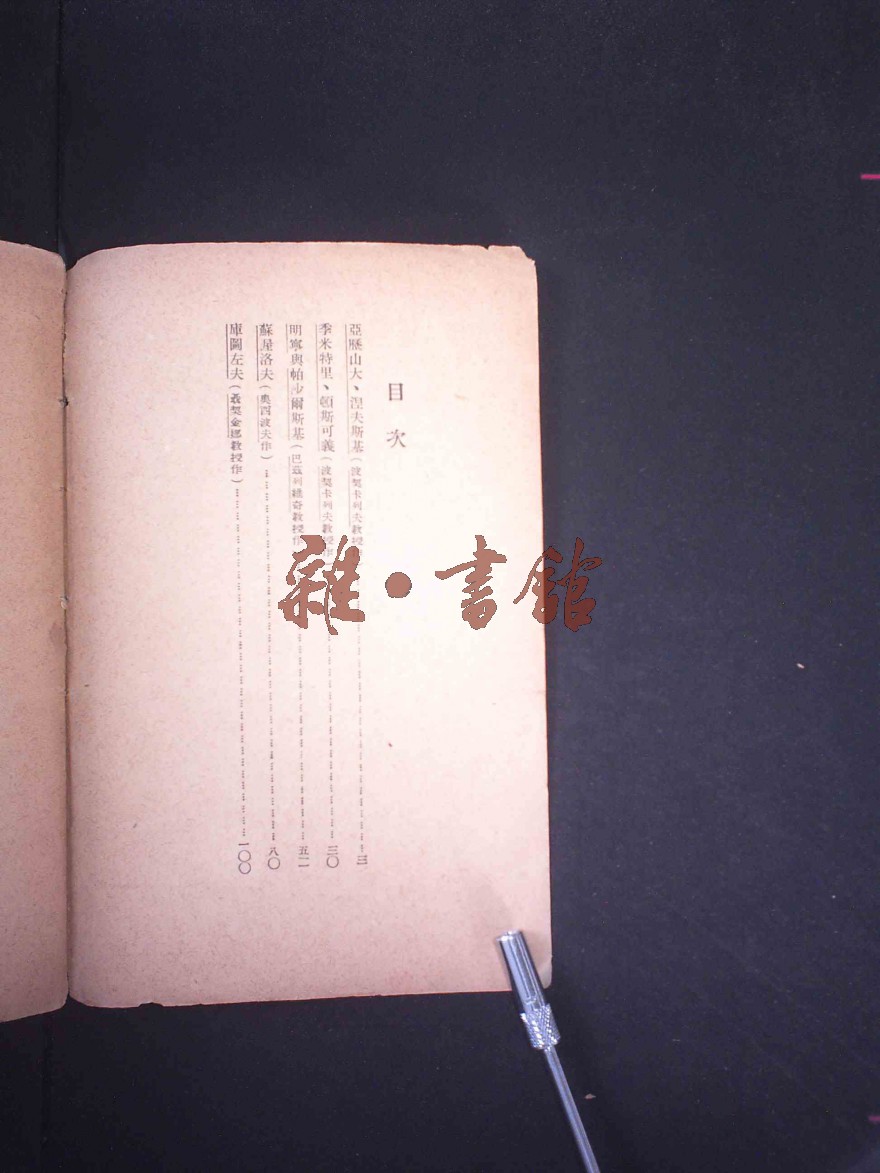 目次
亞歷山大、湼夫斯基(波契卡列夫教授
季米特里、頓斯可義(波契卡列夫教授作
明寧與帕沙爾斯基(巴茲列維奇教授作 ……五二
蘇屋洛夫(奧西波夫作)……八〇
庫圖左夫(聶契金娜教授作)……一〇〇
雜・書館